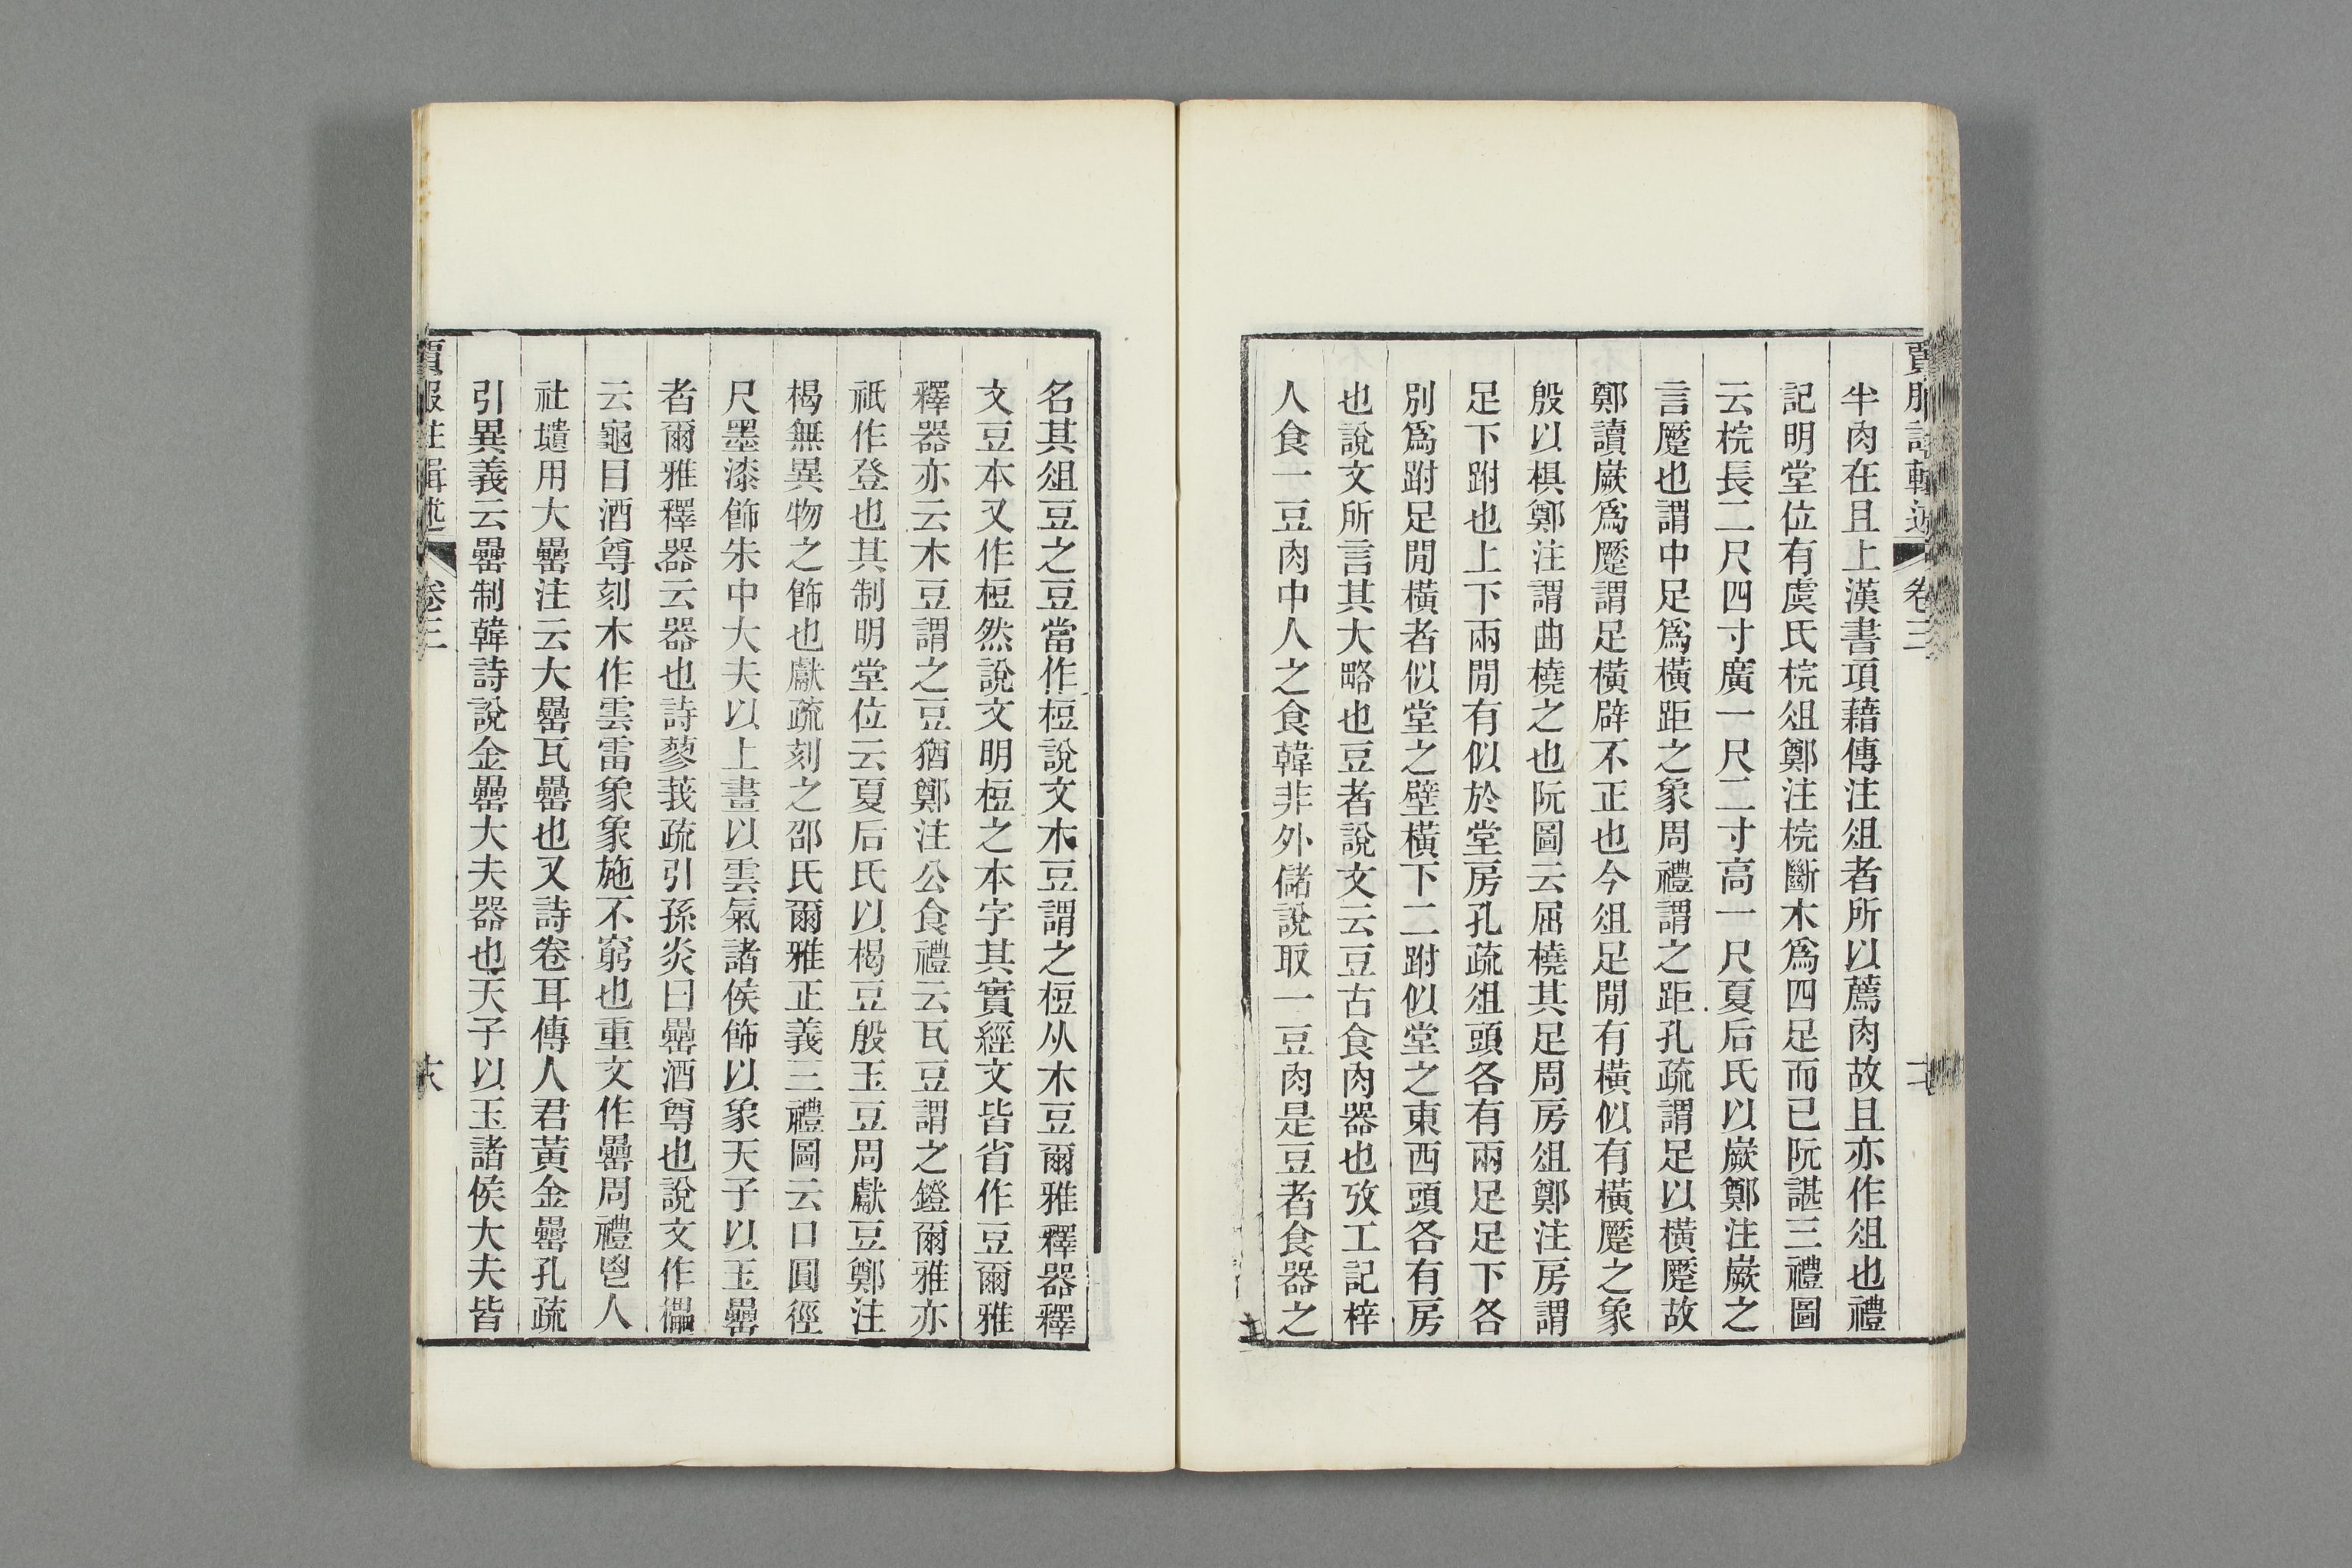 半肉在且上漢書項藉傳注俎者所以薦肉故且亦作俎也禮
記明堂位有虞氏梡俎鄭注梡斷木爲四足而已阮諶三禮圖
云梡長二尺四寸廣一尺二寸高一尺夏后氏以嶡鄭注嶡之
言蹷也謂中足爲橫距之象周禮謂之距孔疏謂足以橫蹷故
鄭讀嶡爲蹷謂足橫辟不正也今俎足閒有橫似有橫蹷之象
殷以椇鄭注謂曲橈之也阮圖云屈橈其足周房俎鄭注房謂
足下跗也上下兩閒有似於堂房孔疏俎頭各有兩足足下各
別爲跗足閒橫者似堂之壁橫下二跗似堂之東西頭各有房
也說文所言其大略也豆者說文云豆古食肉器也攷工記梓
人食一豆肉中人之食韓非外儲說取一豆肉是豆者食器之
名其俎豆之豆當作梪說文木豆謂之梪从木豆爾雅釋器釋
文豆本又作梪然說文明梪之本字其實經文皆省作豆爾雅
釋器亦云木豆謂之豆猶鄭注公食禮云瓦豆謂之鐙爾雅亦
祇作登也其制明堂位云夏后氏以楬豆殷玉豆周獻豆鄭注
楬無異物之飾也獻疏刻之邵氏爾雅正義三禮圖云口圓徑
尺墨漆飾朱中大夫以上畫以雲氣諸侯飾以象天子以玉罍
者爾雅釋器云器也詩蓼莪疏引孫炎曰罍酒尊也說文作櫑
云龜目酒尊刻木作雲雷象象施不窮也重文作罍周禮鬯人
社壝用大罍注云大罍瓦罍也又詩卷耳傳人君黃金罍孔疏
引異義云罍制韓詩說金罍大夫器也天子以玉諸侯大夫皆
卷三